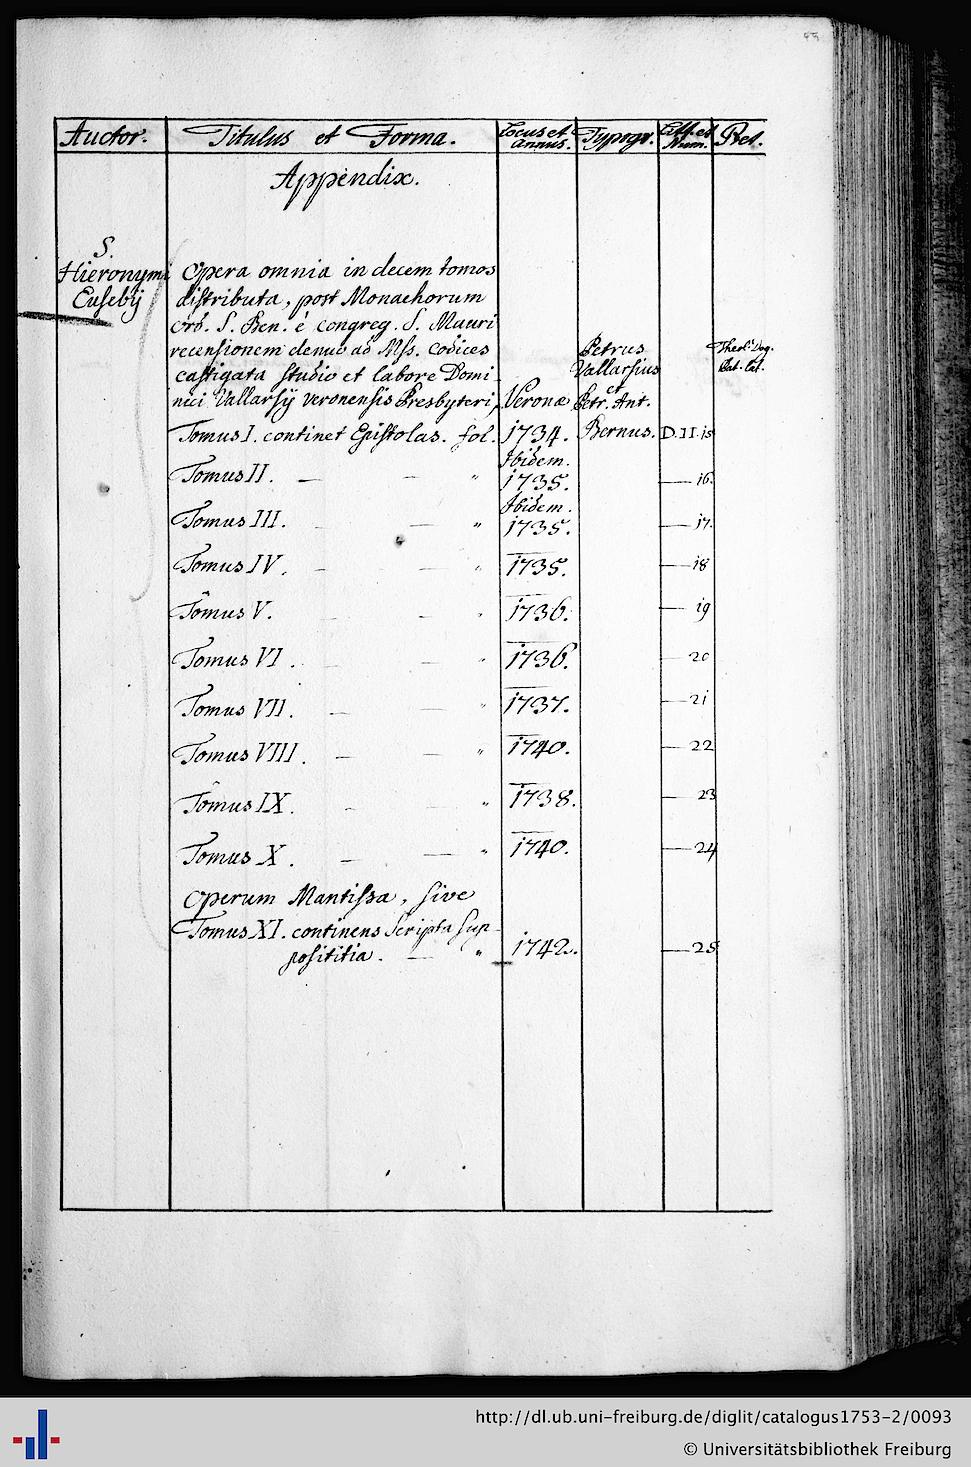 Auctor. Titulus et Forma. Locus et annus. Typogr. Litt. et Num. Rel.
Appendix.
S.
Hieronymi
Eusebij
Opera omnia in decem tomos
distributa, post Monachorum
Ord. S. Ben. è congreg. S. Mauri
recensionem denuo ad Mss. Codices
castigata studio et labore Domi-
nici Vallarsij Veronensis Presbyteri,
Veronæ
Petrus
Vallarsius
et
Petr. Ant.
Theol. Dog.
Tomus I. continet Epistolas. fol. 1734. Bernus. D.II.15
Ibidem.
Tomus II. — — " 1735. — 16.
Ibidem.
Tomus III. — — " 1735. — 17.
Tomus IV. — — " 1735. — 18
Tomus V. — — " 1736. — 19
Tomus VI. — — " 1736. — 20
Tomus VII. — — " 1737. — 21
Tomus VIII. — — " 1740. — 22
Tomus IX. — — " 1738. — 23
Tomus X. — — " 1740. — 24
Operum Mantissa, sive
Tomus XI. continens Scripta sup-
posititia. — " 1742. — 25
http://dl.ub.uni-freiburg.de/diglit/catalogus1753-2/0093
© Universitätsbibliothek Freiburg